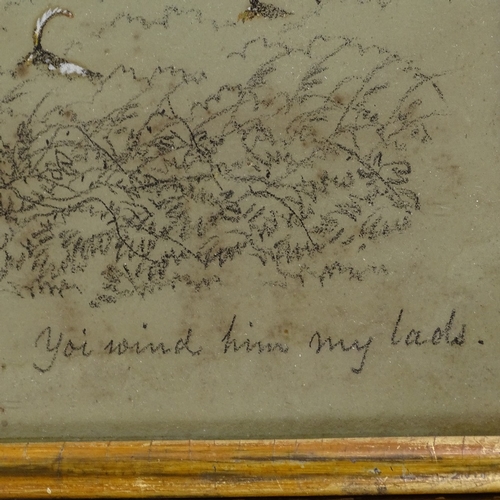 Yoi wind him my lads.